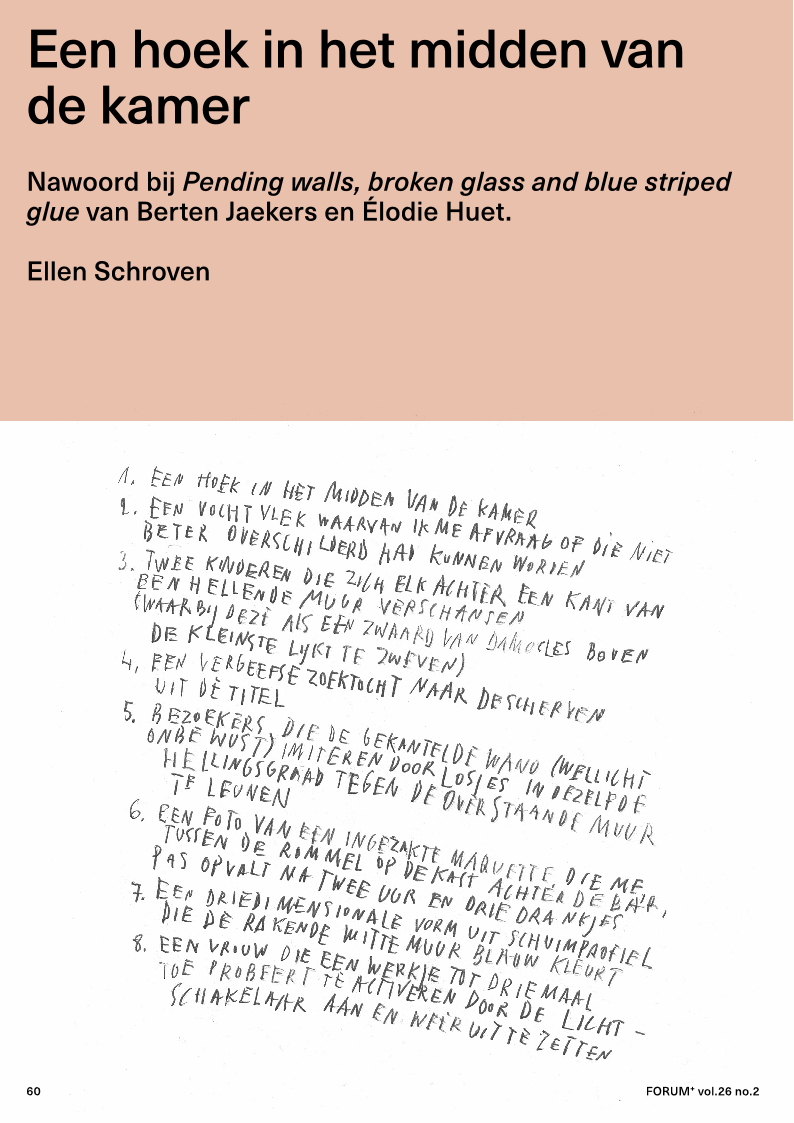 Een hoek in het midden van
de kamer
Nawoord bij Pending walls, broken glass and blue striped
glue van Berten Jaekers en Élodie Huet.
Ellen Schroven
1. EEN HOEK IN HET MIDDEN VAN DE KAMER
2. EEN VOCHTVLEK WAARVAN IK ME AFVRAAG OF DIE NIET
BETER OVERSCHILDERD HAD KUNNEN WORDEN
3. TWEE KINDEREN DIE ZICH ELK ACHTER EEN KANT VAN
EEN HELLENDE MUUR VERSCHANSEN
(WAARBIJ DEZE ALS EEN ZWAARD VAN DAMOCLES BOVEN
DE KLEINSTE LIJKT TE ZWEVEN)
4. EEN VERGEEFSE ZOEKTOCHT NAAR DE SCHERVEN
UIT DE TITEL
5. BEZOEKERS, DIE DE GEKANTELDE WAND (WELLICHT
ONBEWUST) IMITEREN DOOR LOSJES IN DEZELFDE
HELLINGSGRAAD TEGEN DE OVERSTAANDE MUUR
TE LEUNEN
6. EEN FOTO VAN EEN INGEZAKTE MAQUETTE, DIE ME
TUSSEN DE ROMMEL OP DE KAST ACHTER DE BAR,
PAS OPVALT NA TWEE UUR EN DRIE DRANKJES
7. EEN DRIEDIMENSIONALE VORM UIT SCHUIMPROFIEL
DIE DE RAKENDE WITTE MUUR BLAUW KLEURT
8. EEN VROUW DIE EEN WERKJE TOT DRIEMAAL
TOE PROBEERT TE ACTIVEREN DOOR DE LICHT-
SCHAKELAAR AAN EN WEER UIT TE ZETTEN
60
FORUM+ vol.26 no.2